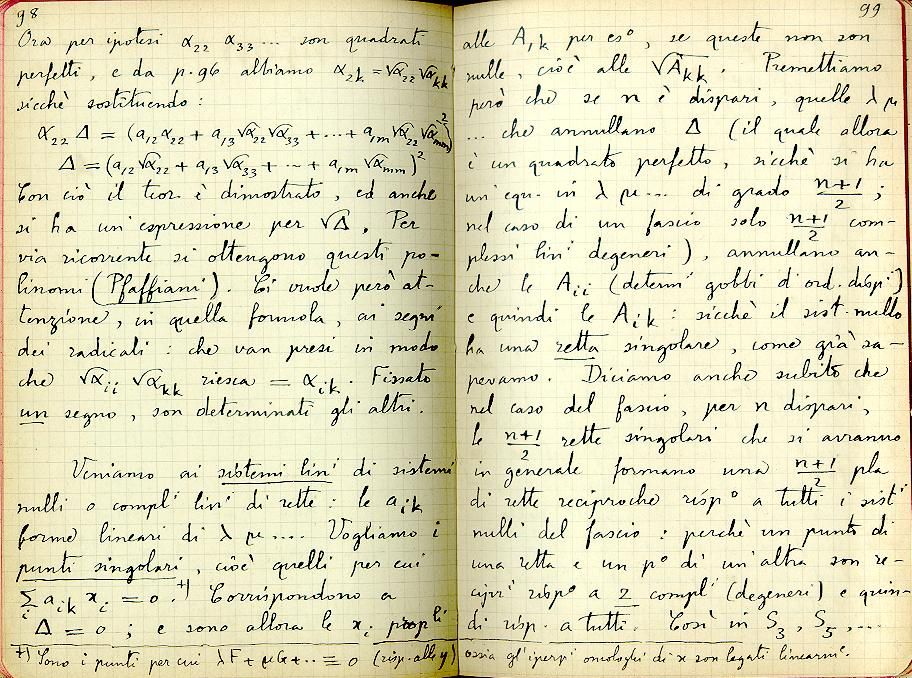 98
Ora per ipotesi α₂₂ α₃₃ ... son quadrati
perfetti, e da p. 96 abbiamo α₂ₖ = √α₂₂ √αₖₖ,
sicchè sostituendo:
α₂₂ Δ = (a₁₂α₂₂ + a₁₃√α₂₂√α₃₃ + ··· + a₁ₘ√α₂₂√αₘₘ)²
Δ = (a₁₂√α₂₂ + a₁₃√α₃₃ + ··· + a₁ₘ√αₘₘ)²
Con ciò il teor. è dimostrato, ed anche
si ha un'espressione per √Δ. Per
via ricorrente si ottengono questi po-
linomi (Pfaffiani). Ci vuole però at-
tenzione, in quella formola, ai segni
dei radicali: che van presi in modo
che √αᵢᵢ √αₖₖ riesca = αᵢₖ. Fissato
un segno, son determinati gli altri.
Veniamo ai sistemi linⁱ di sistemi
nulli o complⁱ linⁱ di rette: le aᵢₖ
forme lineari di λ μ .... Vogliamo i
punti singolari, cioè quelli per cui
Σᵢ aᵢₖ xᵢ = 0 .⁺⁾ Corrispondono a
Δ = 0 ; e sono allora le xᵢ propˡⁱ
+) Sono i punti per cui λF + μG + ·· ≡ 0 (risp. alle y)
99
alle A₁ₖ per esº, se queste non son
nulle, cioè alle √Aₖₖ. Premettiamo
però che se n è dispari, quelle λ μ
... che annullano Δ (il quale allora
è un quadrato perfetto, sicchè si ha
un'equ. in λ μ ... di grado (n+1)/2 ;
nel caso di un fascio solo (n+1)/2 com-
plessi linⁱ degeneri), annullano an-
che le Aᵢᵢ (determⁱ gobbi d'ord. dispⁱ)
e quindi le Aᵢₖ : sicchè il sist. nullo
ha una retta singolare, come già sa-
pevamo. Diciamo anche subito che
nel caso del fascio, per n dispari,
le (n+1)/2 rette singolari che si avranno
in generale formano una (n+1)/2 pla
di rette reciproche rispº a tutti i sistⁱ
nulli del fascio: perchè un punto di
una retta e un pº di un'altra son re-
ciprⁱ rispº a 2 complⁱ (degeneri) e quin-
di risp. a tutti. Così in S₃, S₅, ...
ossia gl'iperpⁱ omologhi di x son legati linearmᵉ.